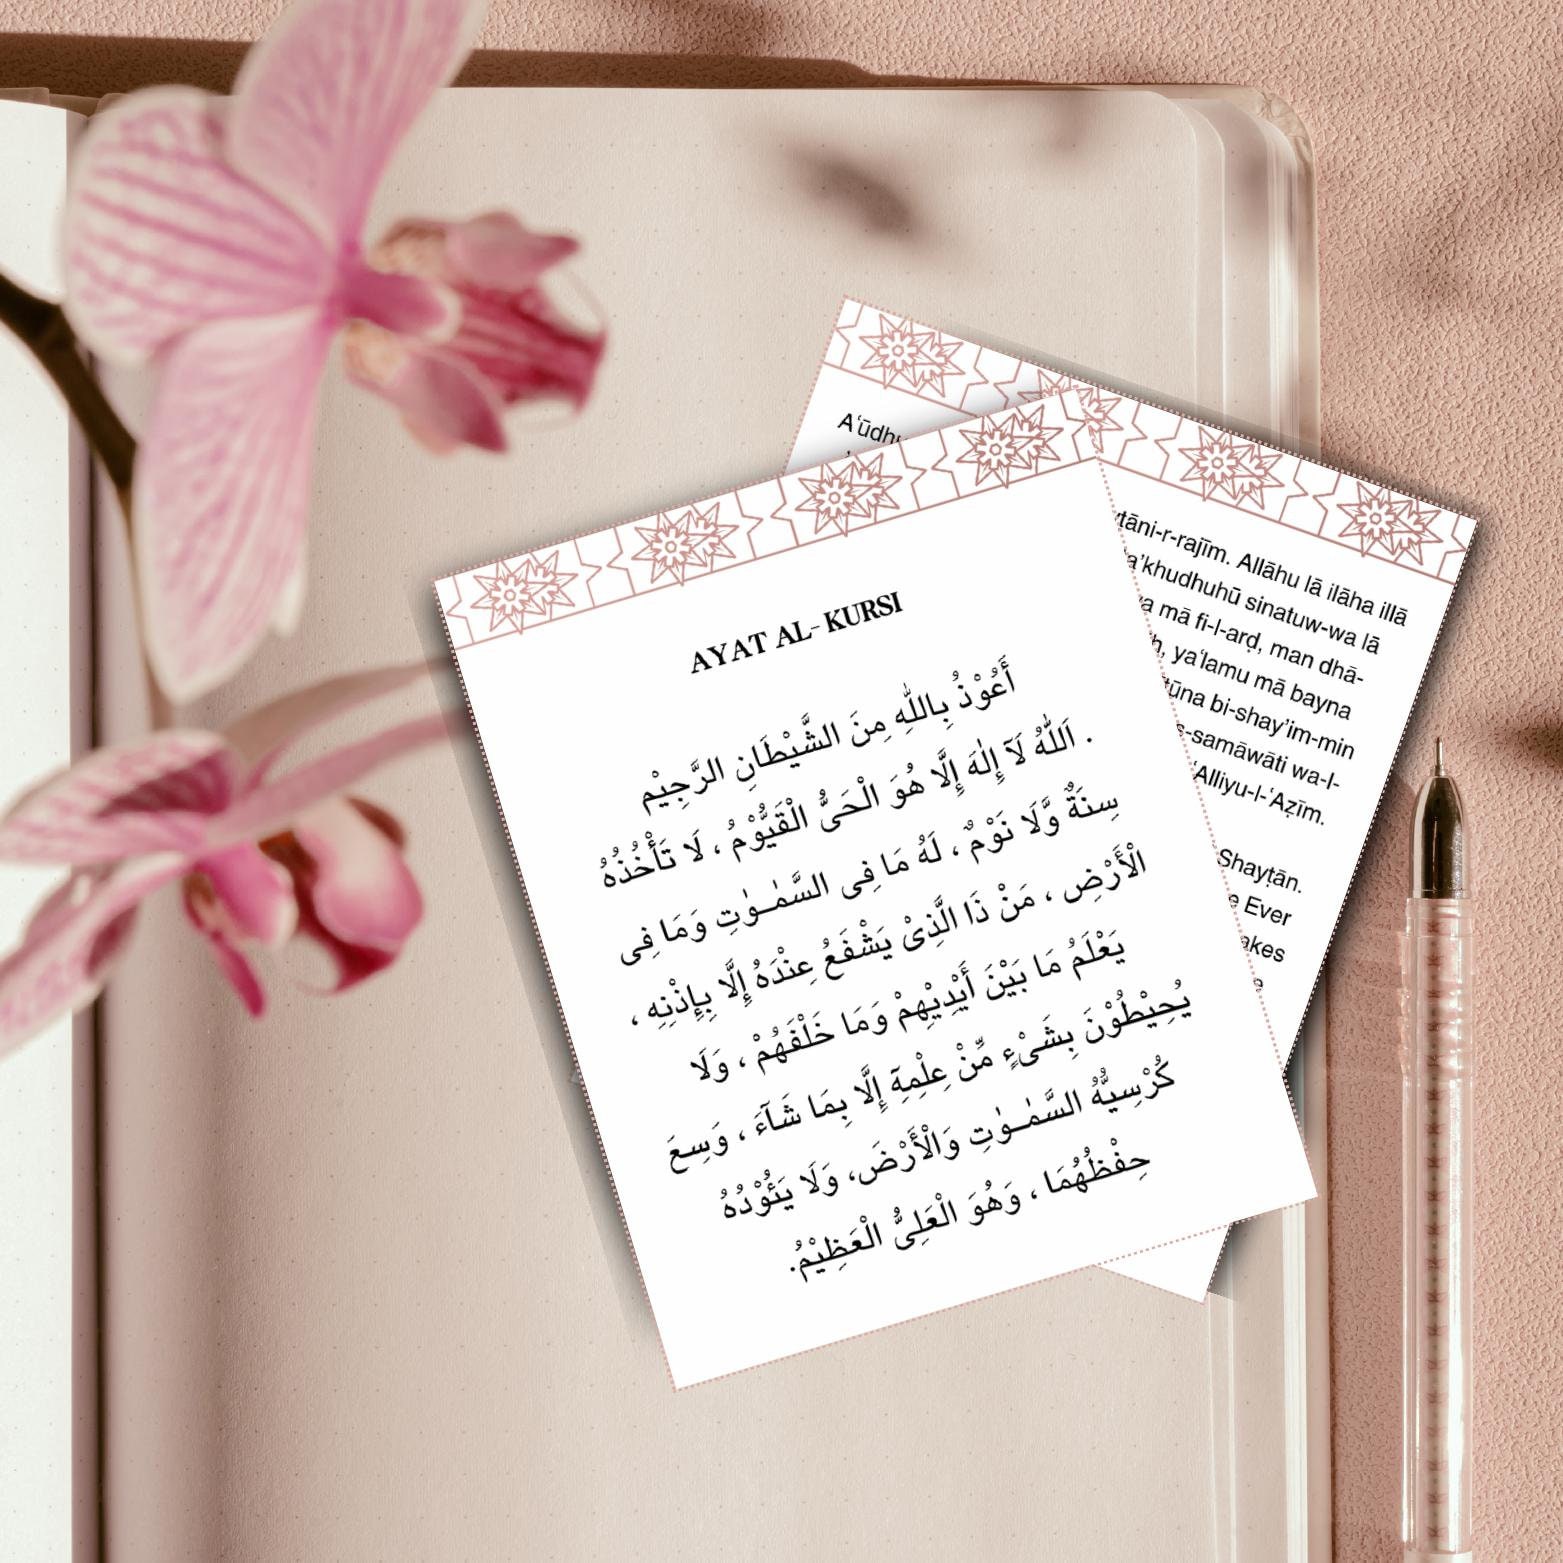 AYAT AL-KURSI
أَعُوْذُ بِاللّٰهِ مِنَ الشَّيْطَانِ الرَّجِيْمِ
. اَللّٰهُ لَآ إِلٰهَ إِلَّا هُوَ الْحَىُّ الْقَيُّوْمُ ، لَا تَأْخُذُهُ
سِنَةٌ وَّلَا نَوْمٌ ، لَهُ مَا فِى السَّمٰـوٰتِ وَمَا فِى
الْأَرْضِ ، مَنْ ذَا الَّذِىْ يَشْفَعُ عِنْدَهُ إِلَّا بِإِذْنِهِ ،
يَعْلَمُ مَا بَيْنَ أَيْدِيْهِمْ وَمَا خَلْفَهُمْ ، وَلَا
يُحِيْطُوْنَ بِشَىْءٍ مِّنْ عِلْمِهٓ إِلَّا بِمَا شَآءَ ، وَسِعَ
كُرْسِيُّهُ السَّمٰـوٰتِ وَالْأَرْضَ، وَلَا يَئُوْدُهُ
حِفْظُهُمَا ، وَهُوَ الْعَلِىُّ الْعَظِيْمُ.
ytāni-r-rajīm. Allāhu lā ilāha illā
a'khudhuhū sinatuw-wa lā
a mā fi-l-arḍ, man dhā-
h, ya‘lamu mā bayna
tūna bi-shay’im-min
s-samāwāti wa-l-
‘Alliyu-l-‘Aẓīm.
Shayṭān.
e Ever
akes